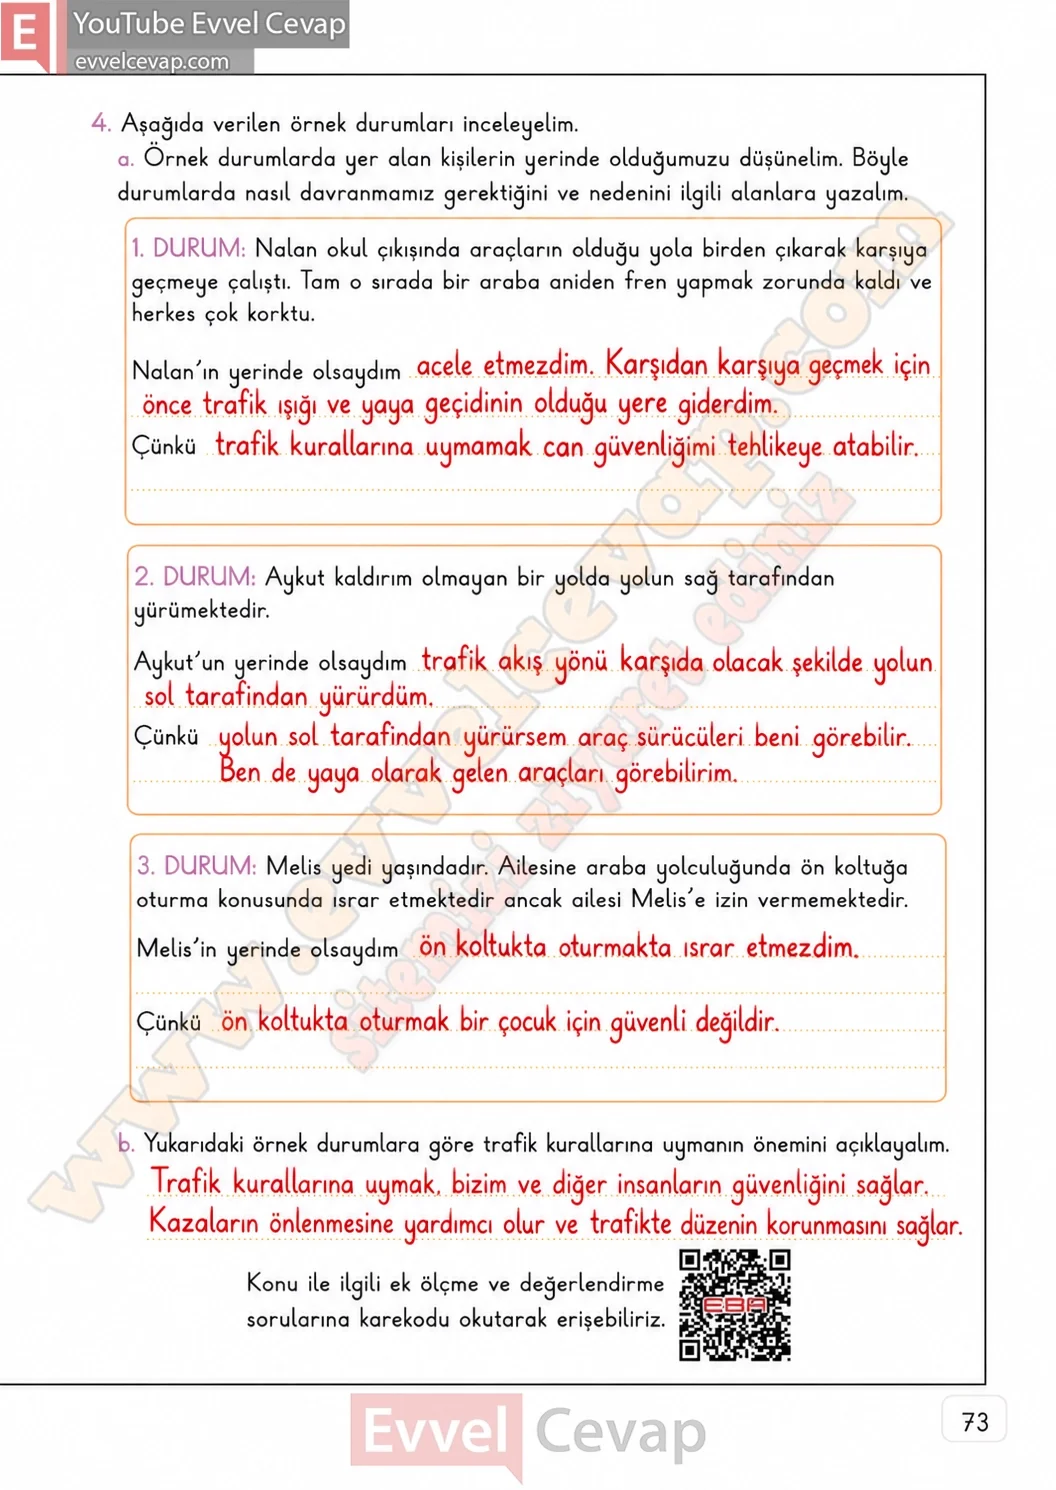 E YouTube Evvel Cevap
evvelcevap.com
4. Aşağıda verilen örnek durumları inceleyelim.
a. Örnek durumlarda yer alan kişilerin yerinde olduğumuzu düşünelim. Böyle
durumlarda nasıl davranmamız gerektiğini ve nedenini ilgili alanlara yazalım.
1. DURUM: Nalan okul çıkışında araçların olduğu yola birden çıkarak karşıya
geçmeye çalıştı. Tam o sırada bir araba aniden fren yapmak zorunda kaldı ve
herkes çok korktu.
Nalan'ın yerinde olsaydım acele etmezdim. Karşıdan karşıya geçmek için
önce trafik ışığı ve yaya geçidinin olduğu yere giderdim.
Çünkü trafik kurallarına uymamak can güvenliğimi tehlikeye atabilir.
2. DURUM: Aykut kaldırım olmayan bir yolda yolun sağ tarafından
yürümektedir.
Aykut'un yerinde olsaydım trafik akış yönü karşıda olacak şekilde yolun
sol tarafından yürürdüm.
Çünkü yolun sol tarafından yürürsem araç sürücüleri beni görebilir.
Ben de yaya olarak gelen araçları görebilirim.
3. DURUM: Melis yedi yaşındadır. Ailesine araba yolculuğunda ön koltuğa
oturma konusunda ısrar etmektedir ancak ailesi Melis'e izin vermemektedir.
Melis'in yerinde olsaydım ön koltukta oturmakta ısrar etmezdim.
Çünkü ön koltukta oturmak bir çocuk için güvenli değildir.
b. Yukarıdaki örnek durumlara göre trafik kurallarına uymanın önemini açıklayalım.
Trafik kurallarına uymak, bizim ve diğer insanların güvenliğini sağlar.
Kazaların önlenmesine yardımcı olur ve trafikte düzenin korunmasını sağlar.
Konu ile ilgili ek ölçme ve değerlendirme
sorularına karekodu okutarak erişebiliriz.
EBA
www.evvelcevap.com
sitemizi ziyaret ediniz
Evvel Cevap
73